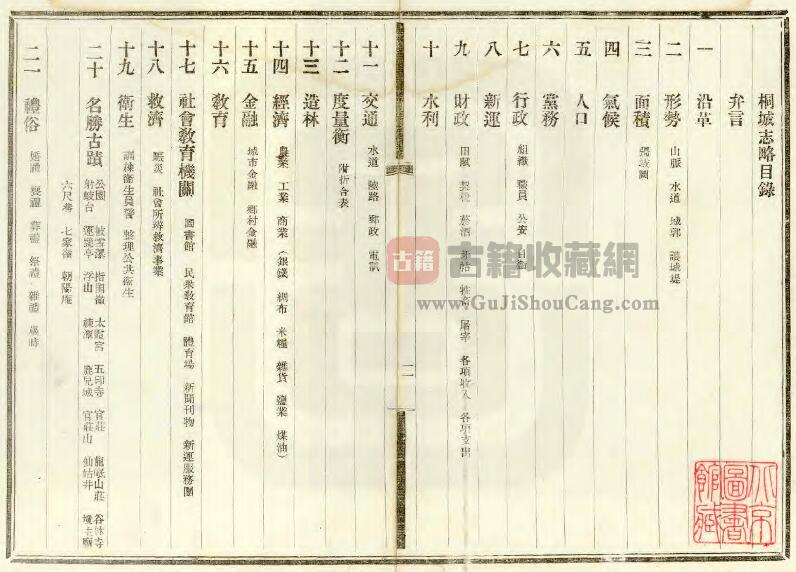 桐城志略目錄
弁言
一 沿革
二 形勢 山脈 水道 城郭 護城堤
三 面積 疆域圖
四 氣候
五 人口
六 黨務
七 行政 組織 職員 公安 自衛
八 新運
九 財政 田賦 契稅 菸酒 牙帖 牲畜 屠宰 各項收入 各項支出
十 水利
十一 交通 水道 陸路 郵政 電訊
十二 度量衡 附折合表
十三 造林
十四 經濟 農業 工業 商業(銀錢 綢布 米糧 雜貨 鹽業 煤油)
十五 金融 城市金融 鄉村金融
十六 敎育
十七 社會敎育機關 圖書館 民衆敎育館 體育場 新聞刊物 新運服務團
十八 救濟 賑災 社會所辦救濟事業
十九 衛生 訓練衛生員警 整理公共衛生
二十 名勝古蹟 公園 披雪瀑 指南 太霞宮 五印寺 官莊 龍眠山莊 谷林寺
射蛟台 浮山 練潭 鹿兒城 官莊山 仙姑井 境主廟
六尺巷 七家嶺 朝陽庵
二一 禮俗 婚禮 喪禮 葬禮 祭禮 雜禮 歲時
二
北京圖書館藏
古籍
古籍收藏網
www.GuJiShouCang.com